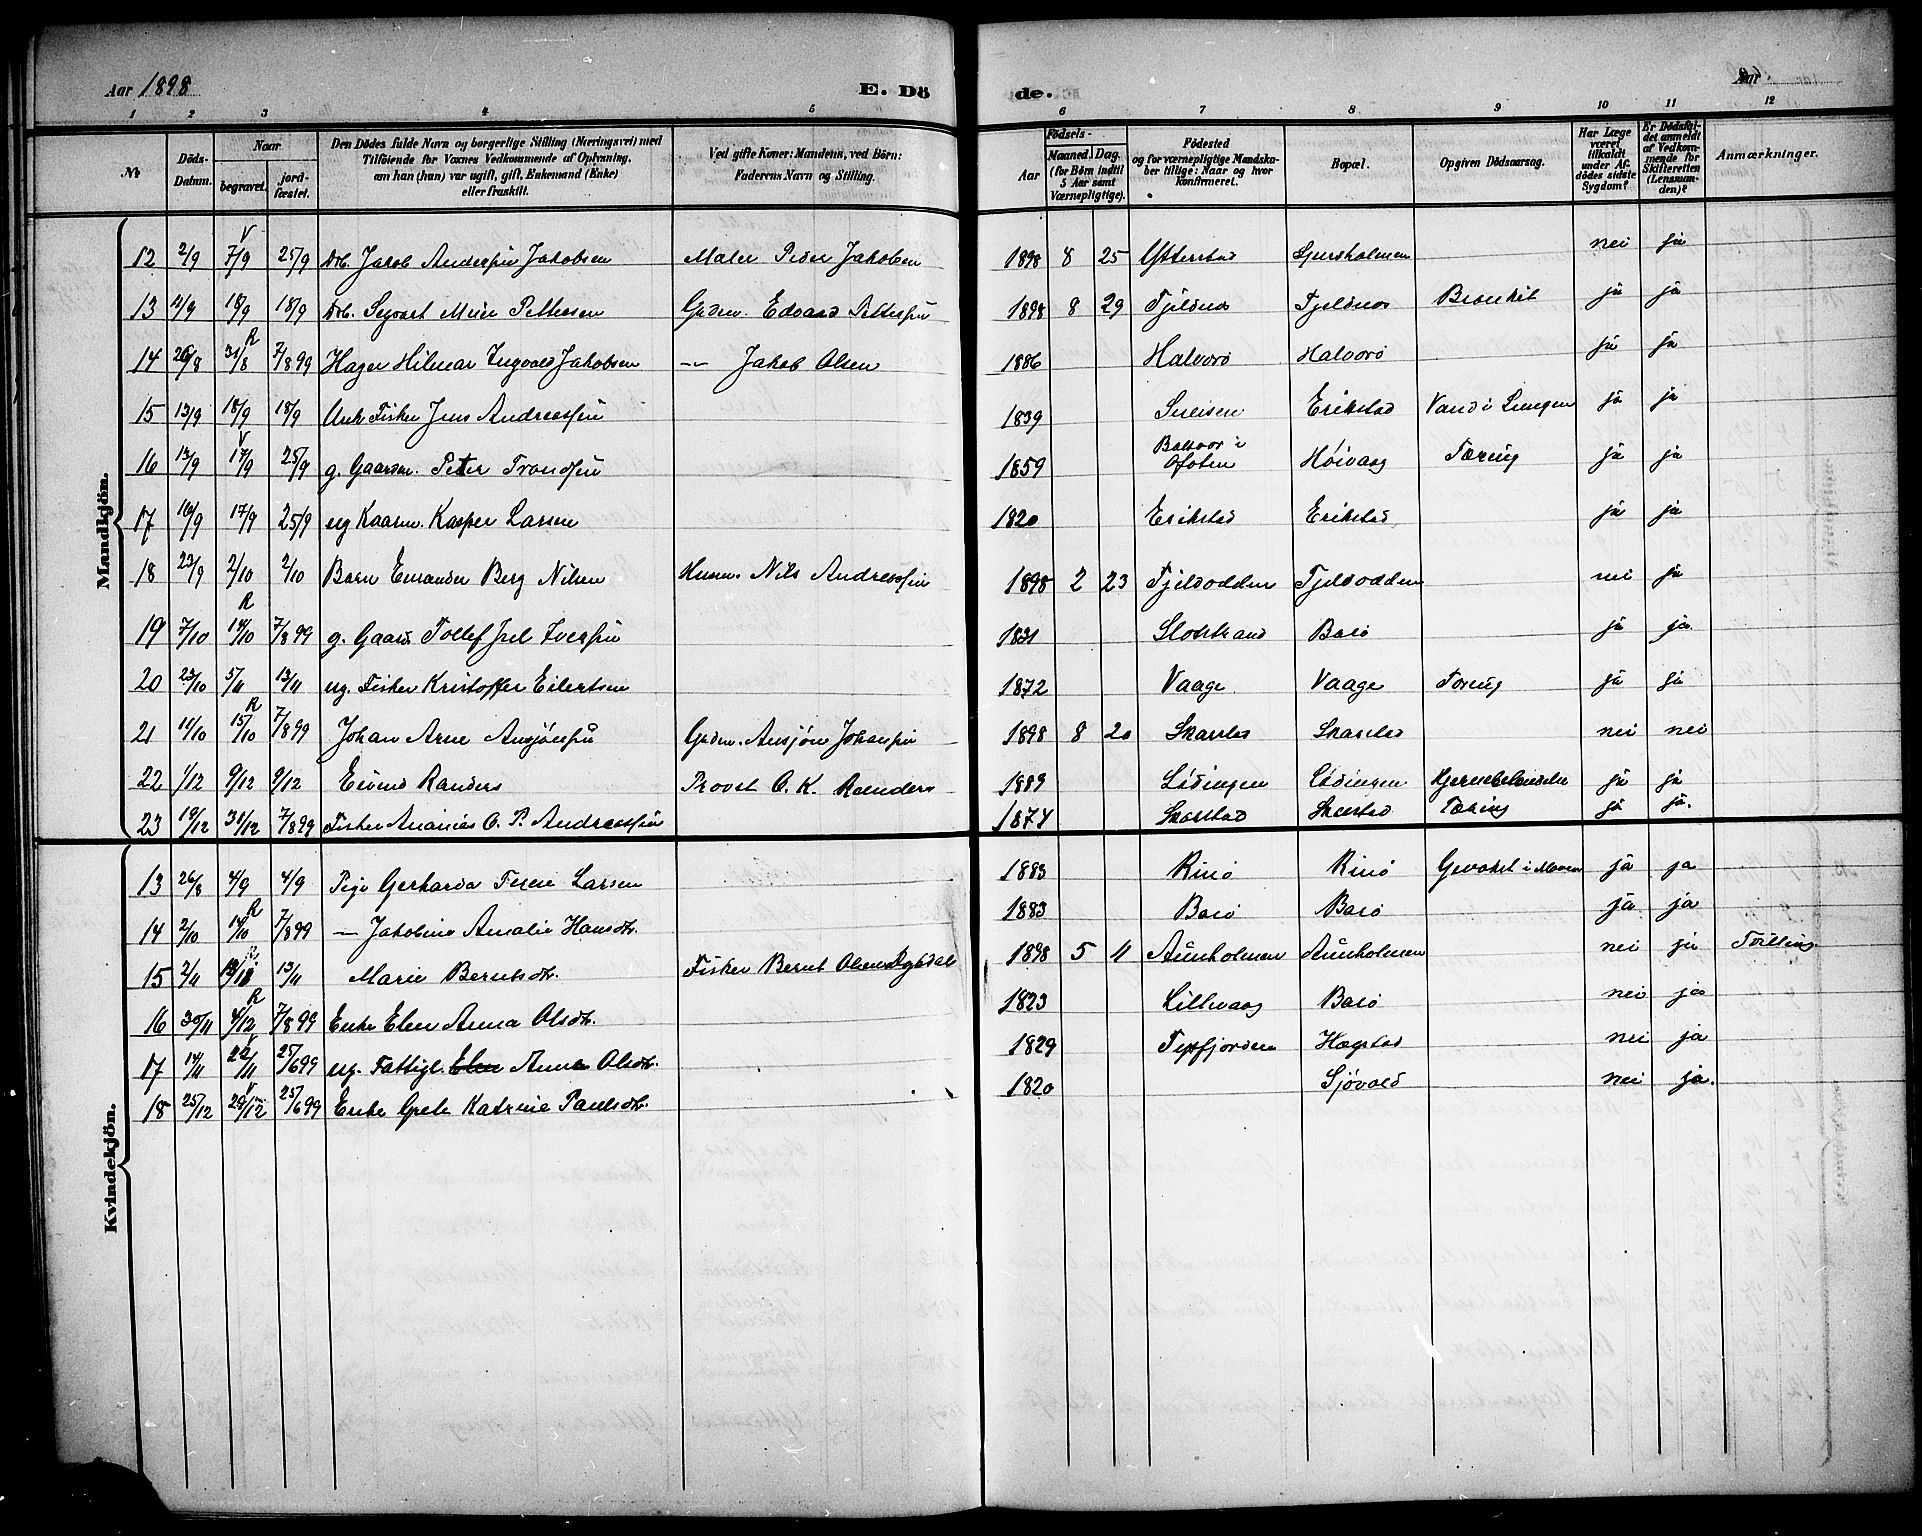 Aar 1898 E. Dö de. Aar
1 2 3 4 5 6 7 8 9 10 11 12
№ Döds-Datum. Naar begravet. jord-fæstet. Den Dödes fulde Navn og borgerlige Stilling (Næringsvei) med Tilföiende for Voxnes Vedkommende af Oplysning, om han (hun) var ugift, gift, Enkemand (Enke) eller fraskilt. Ved gifte Koner: Mandens, ved Börn: Faderens Navn og Stilling. Födsels- Aar Maaned. Dag. (for Börn indtil 5 Aar samt Værnepligtige). Födested og for værnepligtige Mandska-ber tillige: Naar og hvor konfirmeret. Bopæl. Opgiven Dödsaarsag. Har Læge været tilkaldt under Af-dödes sidste Sygdom? Er Dödsfal-det anmeldt af Vedkom-mende for Skifteretten (Lensman-den)? Anmærkninger.
Mandkjön.
12 2/9 V 7/9 25/9 Drb. Jakob Jakobsen Maler Peder Jakobsen 1898 8 25 Ytterstad nei ja
13 4/9 18/9 18/9 Drb. Pettersen Gadm. Edvard Pettersen 1898 8 29 Tjeldnes Tjeldnes Bronkit ja ja
14 26/8 R 31/8 7/8 99 Hilmar Ingvald Jakobsen — Jakob Olsen 1886 Halvorö Halvorö ja ja
15 13/9 18/9 18/9 Fisker Jens Andreassen 1839 Erikstad Vand i Lungen ja ja
16 13/9 V 17/9 25/9 g. Gaarm. Peter Trondsen 1859 i Ofoten Höivaag Tæring ja ja
17 16/9 17/9 25/9 ug Kaarm. Kasper Larsen 1820 Erikstad Erikstad ja ja
18 23/9 2/10 2/10 Barn Berg Nilsen Husm. Nils Andreassen 1898 2 23 Tjeldodden Tjeldodden nei ja
19 7/10 R 14/10 7/8 99 g. Gaard. Tollef Iversen 1831 Barö ja ja.
20 23/10 5/11 13/11 ug. Fisker Kristoffer Eilertsen 1872 Vaage Vaage Tæring ja ja
21 11/10 R 15/10 7/8 99 Johan Arne Ansjönsen Gadm. Ansjön Johansen 1898 8 20 Skarstad Skarstad nei nei
22 1/12 9/12 9/12 Eivind Randers Provst O. K. Randers 1889 Lödingen Lödingen ja ja
23 19/12 31/12 7/8 99 Fisker Ananias O. P. Andreassen 1874 Skarstad Skarstad Tæring ja ja.
Kvindekjön.
13 26/8 4/9 4/9 Pige Gerharda Larsen 1883 Rinö Rinö ja ja
14 2/10 R 14/10 7/8 99 — Jakobine Amalie Hansdtr. 1883 Barö Barö ja ja
15 2/11 13/11 Marie Berntsdtr. Fisker Bernt Olsen 1898 5 11 nei ja Tvilling
16 30/11 R 4/12 7/8 99 Enke Elen Anna Olsdtr. 1823 Barö nei ja
17 14/11 V 22/11 25/6 99 ug. Fattigl. Elen Anna Olsdtr. 1829 Hagstad nei ja
18 25/12 V 29/12 25/6 99 Enke Grete Katrine Paulsdtr. 1820 Sjövold nei ja.